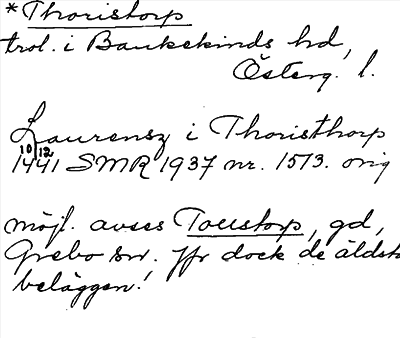 *Thoristorp
trol. i Bankekinds hd,
Österg. l.
Laurensz i Thoristhorp
10/12 1441 SMR 1937 nr. 1513. orig
möjl. avses Torustorp, gd,
Grebo sn. Jfr dock de äldsta
beläggen!